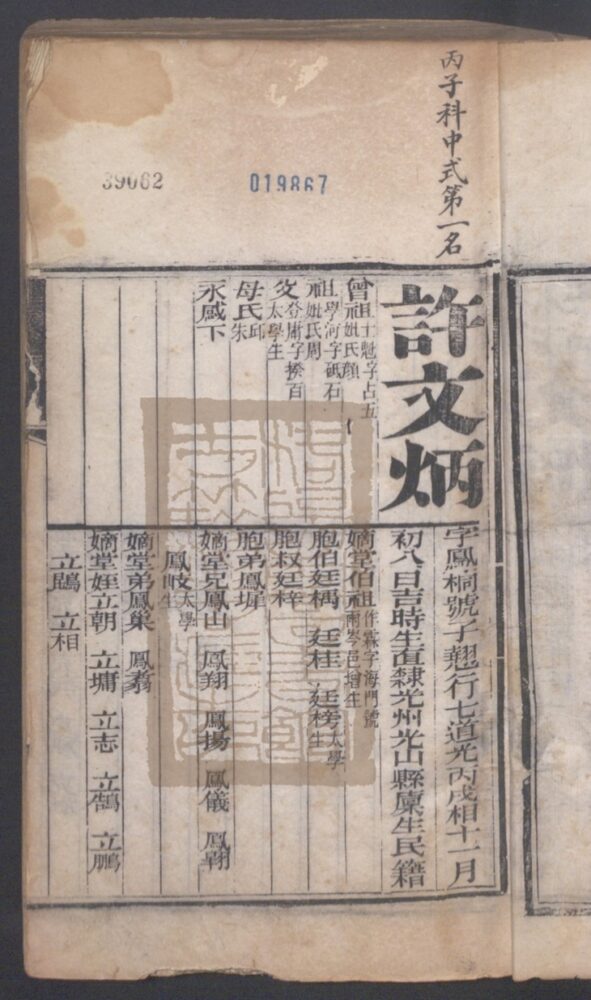 丙子科中式第一名
39062
019867
許文炳
字鳳桐號子翹行七道光丙戌相十一月
初八日吉時生直隸光州光山縣廩生民籍
曾祖士魁字占五
妣氏顏
祖學河字砥石
妣氏周
父登庸字揆百
太學生
母氏邱
朱
永感下
嫡堂伯祖作霖字海門號
南岑邑增生
胞伯廷楀 廷桂 廷榜太學
生
胞叔廷梓
胞弟鳳墀
嫡堂兄鳳山 鳳翔 鳳揚 鳳儀 鳳翱
鳳岐太學
生
嫡堂弟鳳巢 鳳翥
嫡堂姪立朝 立墉 立志 立鵠 立鵬
立鵾 立相